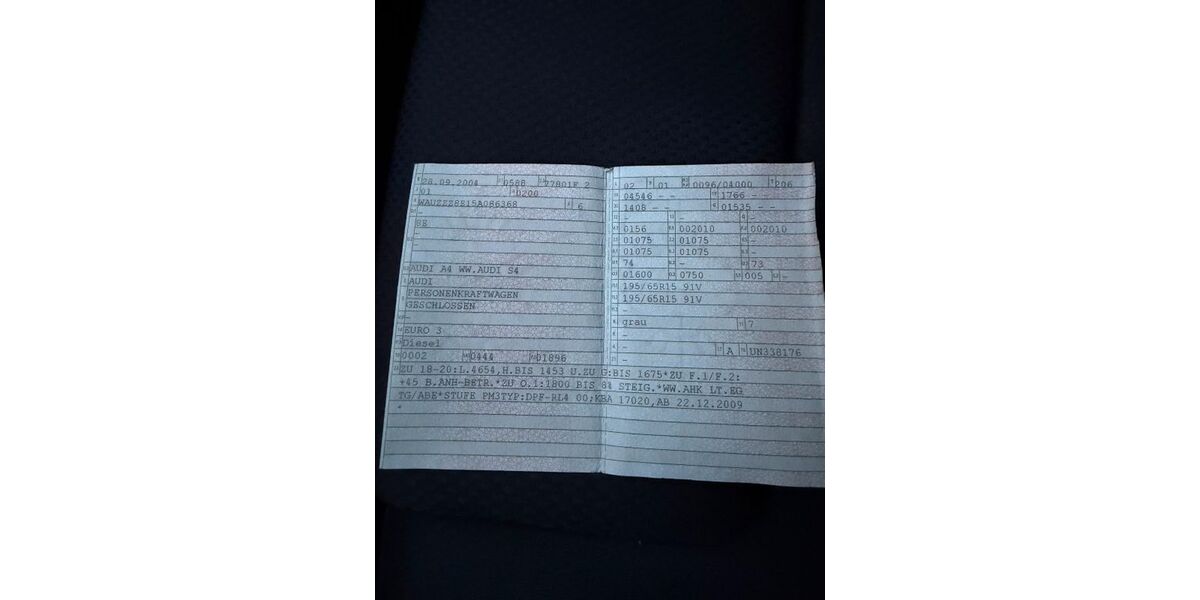 28.09.2004 0588 77801F 2
01 0200
WAUZZZ8E15A086368 6
-
8E
-
AUDI A4 WW.AUDI S4
AUDI
PERSONENKRAFTWAGEN
GESCHLOSSEN
-
EURO 3
Diesel
0002 0444 01896
02 01 0096/04000 206
04546 - - 1766 - -
1408 - - 01535 - -
- - -
0156 002010 002010
01075 01075 -
01075 01075 -
74 - 73
01600 0750 005 -
195/65R15 91V
195/65R15 91V
-
grau 7
-
- A UN338176
-
ZU 18-20:L.4654,H.BIS 1453 U.ZU G:BIS 1675*ZU F.1/F.2:
+45 B.ANH-BETR.*ZU O.1:1800 BIS 8% STEIG.*WW.AHK LT.EG
TG/ABE*STUFE PM3TYP:DPF-RL4 00;KBA 17020,AB 22.12.2009
*